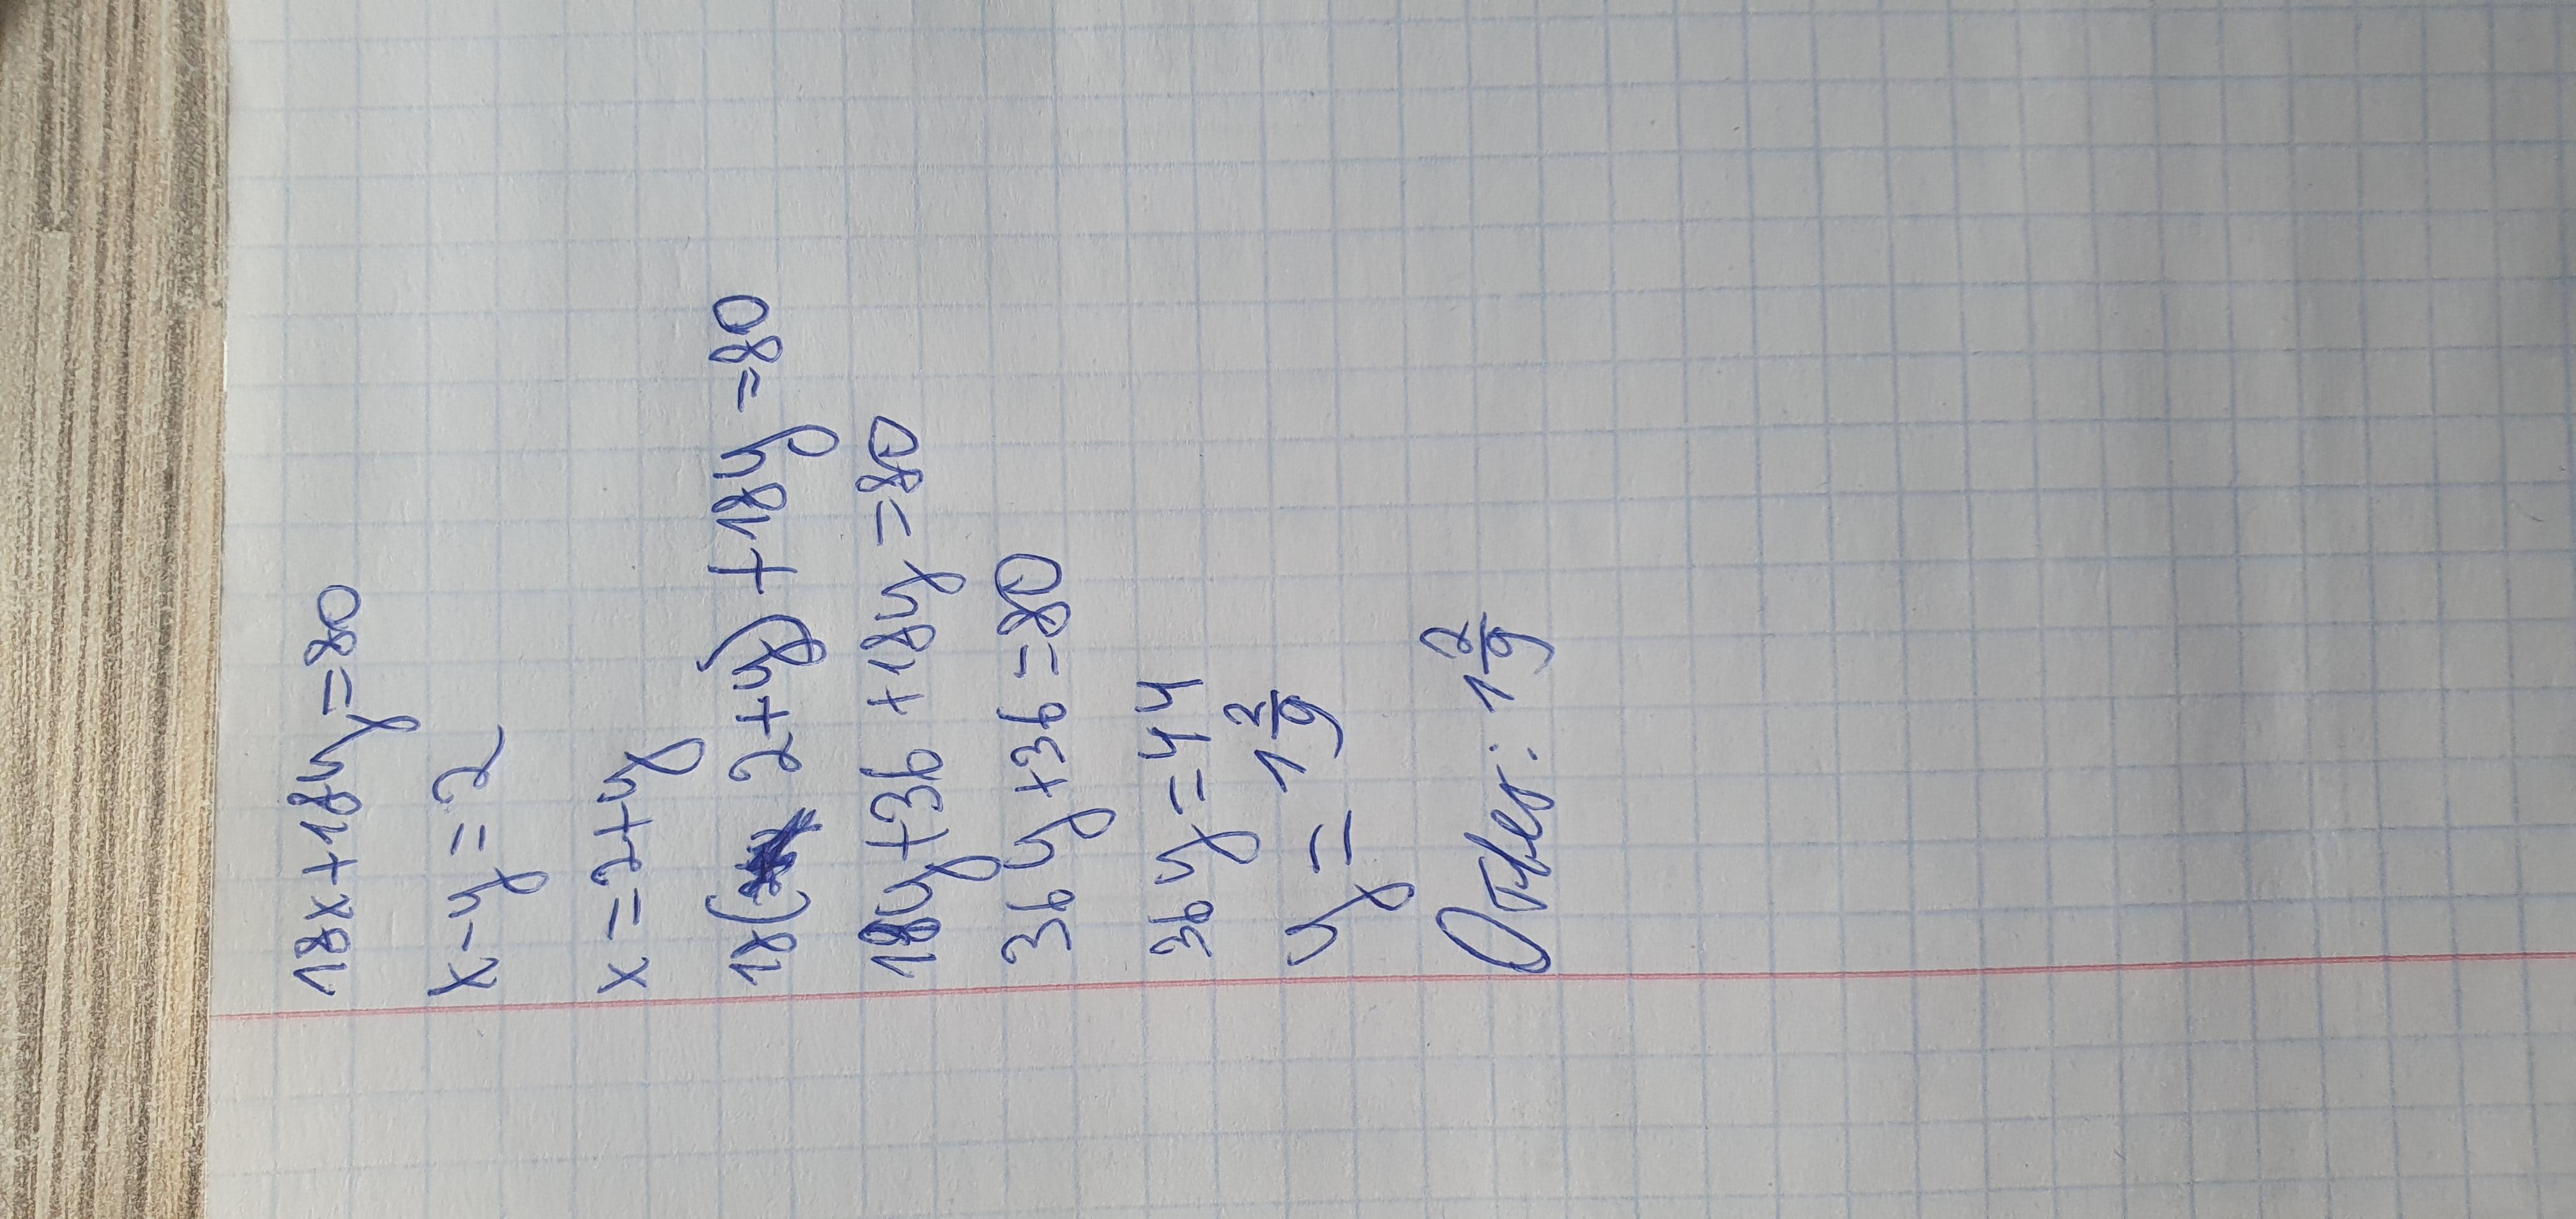 18x+18y=80
x-y=2
x=2+y
18(2+y)+18y=80
18y+36+18y=80
36y+36=80
36y=44
y=1 2/9
Ответ: 1 2/9